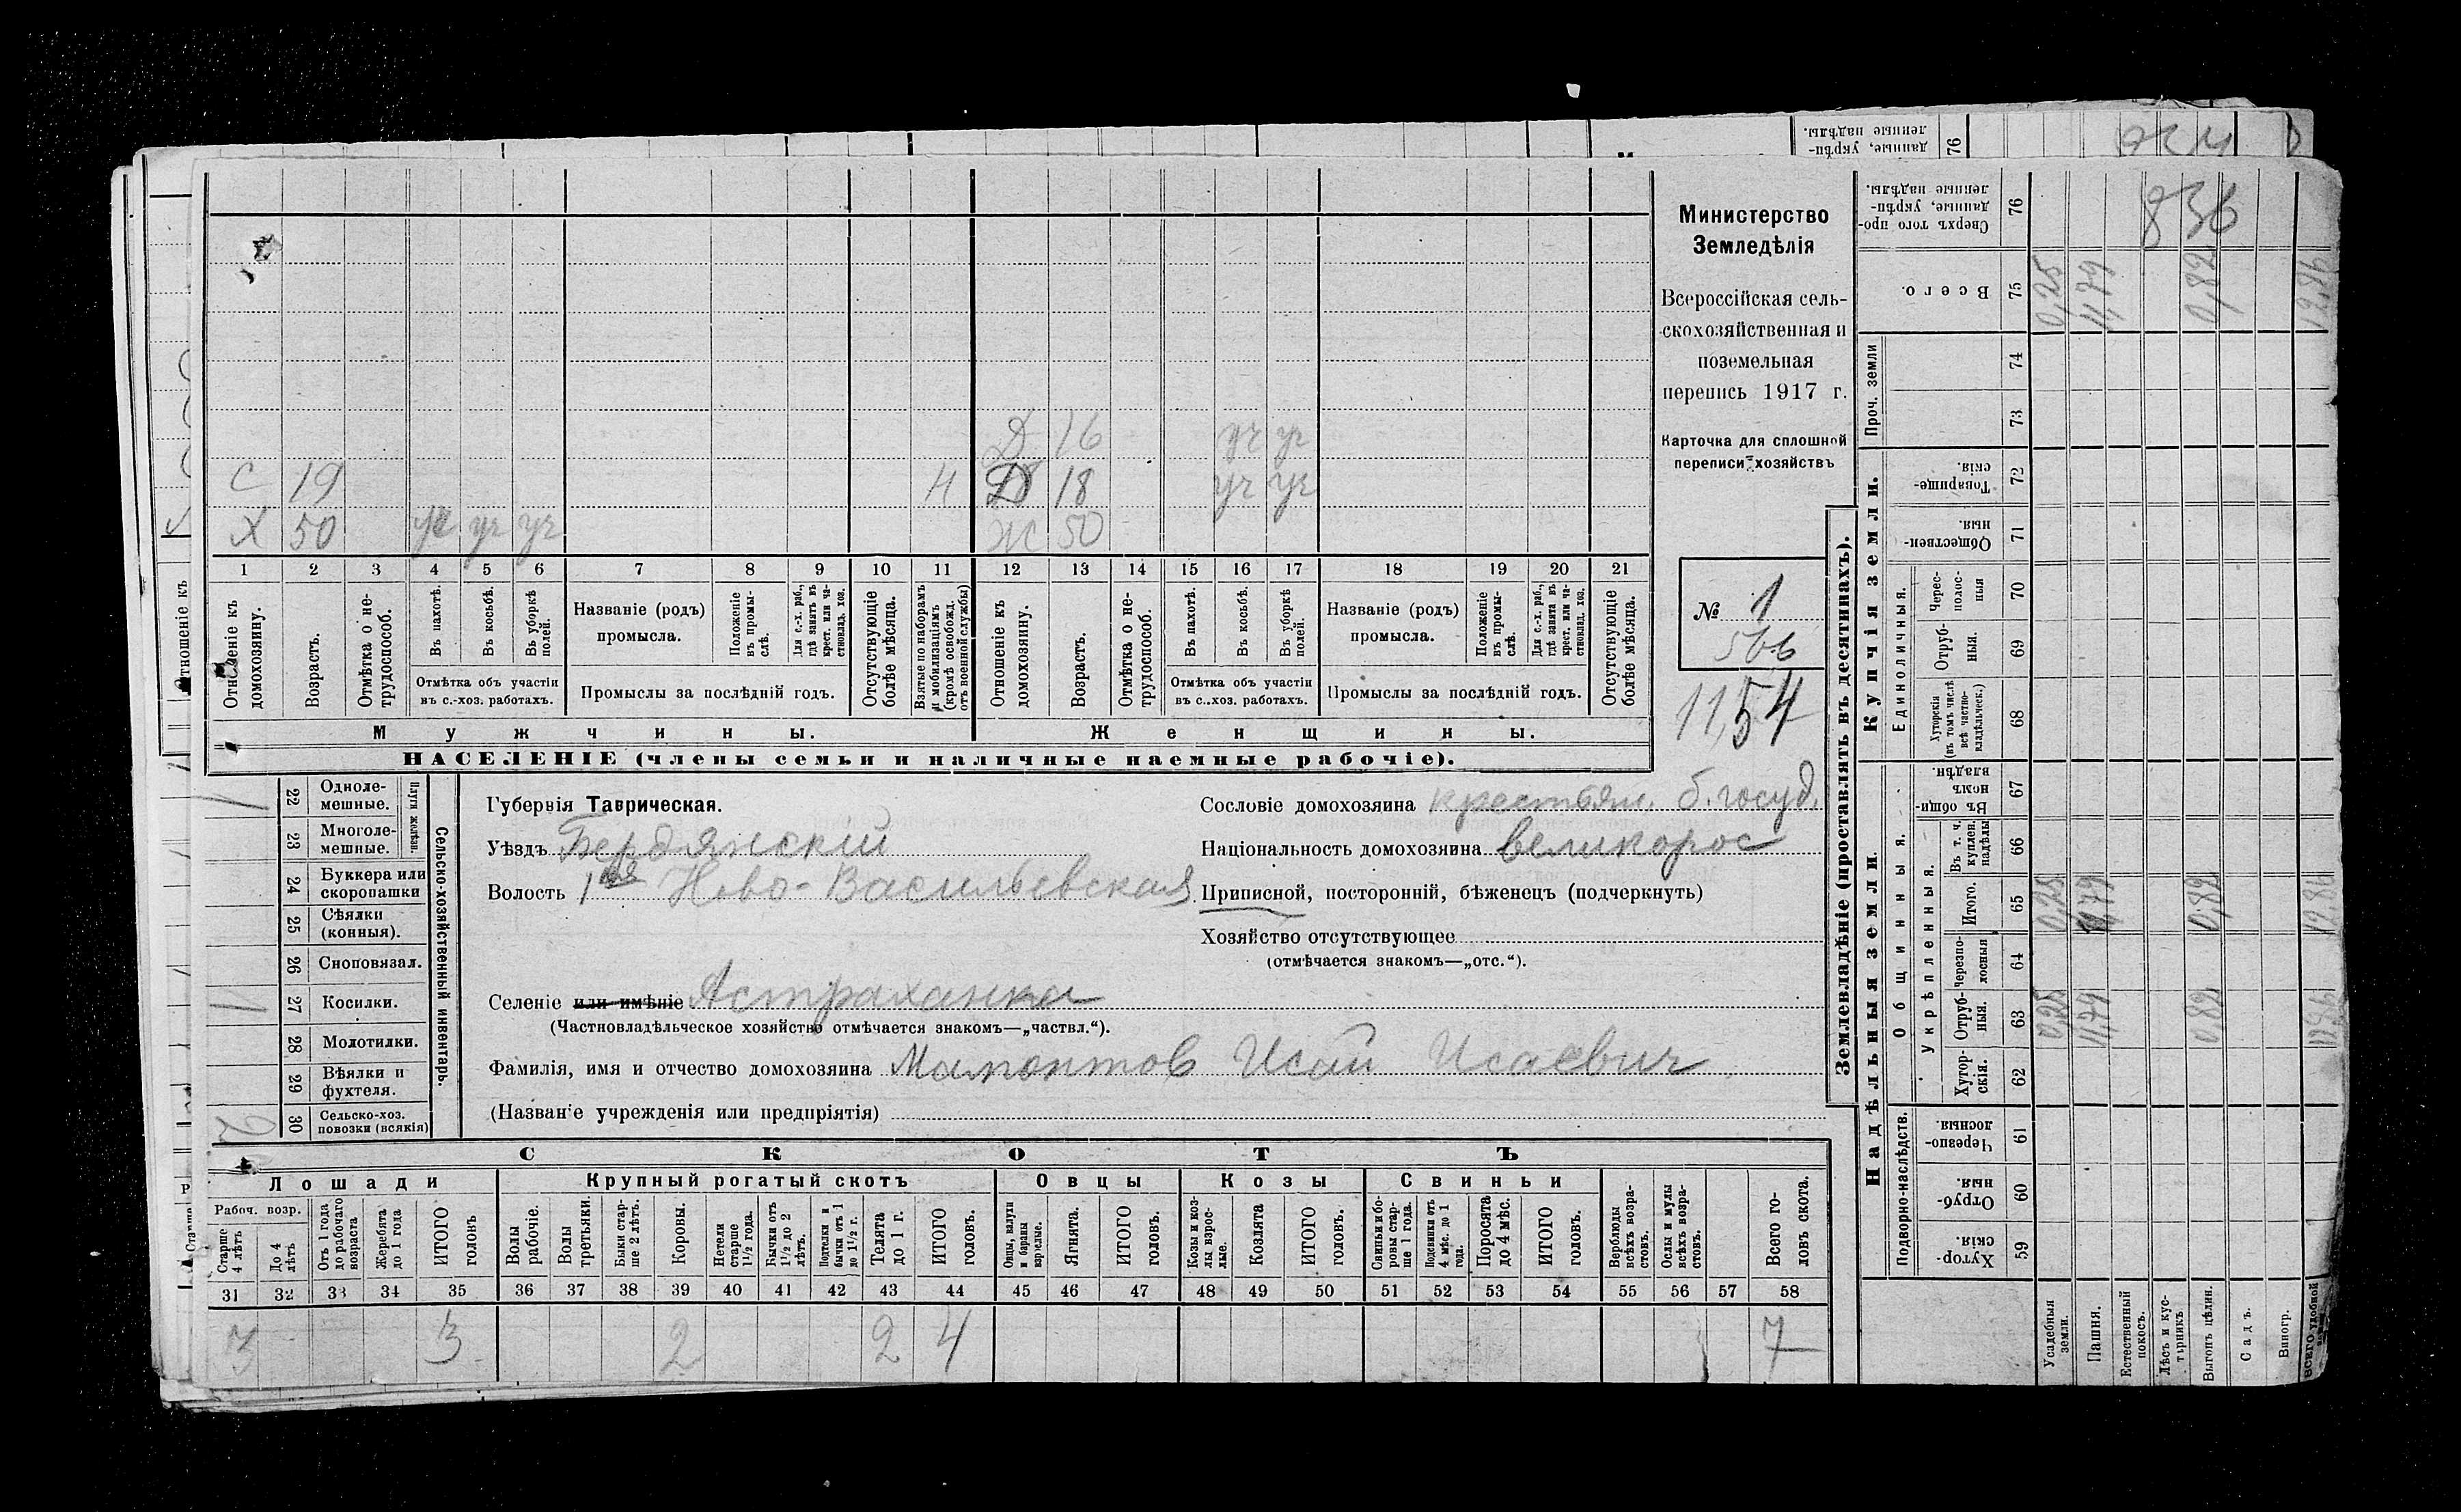 Министерство
Земледѣлія
Всероссійская сель-
скохозяйственная и
поземельная
перепись 1917 г.
Карточка для сплошной
переписи хозяйствъ
№ 1
566
11,54
Д 16 уч уч
С 19 Н Д 18 уч уч
Х 50 уч уч уч Ж 50
1 2 3 4 5 6 7 8 9 10 11 12 13 14 15 16 17 18 19 20 21
Отношеніе къ домохозяину.
Возрастъ.
Отмѣтка о не-трудоспособ.
Въ пахотѣ.
Въ косьбѣ.
Въ уборкѣ полей.
Отмѣтка объ участіи въ с.-хоз. работахъ.
Названіе (родъ) промысла.
Положеніе въ промы-слѣ.
Для с.-х. раб., гдѣ занятъ въ крест. или ча-стновлад. хоз.
Промыслы за послѣдній годъ.
Отсутствующіе болѣе мѣсяца.
Взятые по наборамъ и мобилизаціямъ (кромѣ освобожд. отъ военной службы)
Отношеніе къ домохозяину.
Возрастъ.
Отмѣтка о не-трудоспособ.
Въ пахотѣ.
Въ косьбѣ.
Въ уборкѣ полей.
Отмѣтка объ участіи въ с.-хоз. работахъ.
Названіе (родъ) промысла.
Положеніе въ промы-слѣ.
Для с.-х. раб., гдѣ занята въ крест. или ча-стновлад. хоз.
Промыслы за послѣдній годъ.
Отсутствующіе болѣе мѣсяца.
Мужчины. Женщины.
НАСЕЛЕНІЕ (члены семьи и наличные наемные рабочіе).
Сельско-хозяйственный инвентарь.
Плуги желѣзн.
1 22 Одноле-мешные.
23 Многоле-мешные.
24 Буккера или скоропашки
25 Сѣялки (конныя).
26 Сноповязал.
1 27 Косилки.
28 Молотилки.
29 Вѣялки и фухтеля.
2 30 Сельско-хоз. повозки (всякія)
Губернія Таврическая.
Уѣздъ Бердянскій
Волость 1ая Ново-Васильевская
Селеніе или имѣніе Астраханка
(Частновладѣльческое хозяйство отмѣчается знакомъ—„частвл.“).
Фамилія, имя и отчество домохозяина Мамонтов Исай Исаевич
(Названіе учрежденія или предпріятія)
Сословіе домохозяина крестьян. б. госуд.
Національность домохозяина великорос
Приписной, посторонній, бѣженецъ (подчеркнуть)
Хозяйство отсутствующее
(отмѣчается знакомъ—„отс.“).
СКОТЪ
Лошади Крупный рогатый скотъ Овцы Козы Свиньи
Рабоч. возр.
Старше 4 лѣтъ
До 4 лѣтъ
Отъ 1 года до рабочаго возраста
Жеребята до 1 года
ИТОГО головъ
Волы рабочіе.
Волы третьяки.
Быки стар-ше 2 лѣтъ.
Коровы.
Нетели старше 1½ года.
Бычки отъ 1½ до 2 лѣтъ.
Подтелки и бычки отъ 1 до 1½ г.
Телята до 1 г.
ИТОГО головъ.
Овцы, валухи и бараны взрослые.
Ягнята.
ИТОГО головъ.
Козы и коз-лы взрос-лые.
Козлята
ИТОГО головъ.
Свиньи и бо-ровы стар-ше 1 года.
Подсвинки отъ 4 мѣс. до 1 года.
Поросята до 4 мѣс.
ИТОГО головъ.
Верблюды всѣхъ возра-стовъ.
Ослы и мулы всѣхъ возра-стовъ.
Всего го-ловъ скота.
31 32 33 34 35 36 37 38 39 40 41 42 43 44 45 46 47 48 49 50 51 52 53 54 55 56 57 58
3 3 2 2 4 7
Землевладѣніе (проставлять въ десятинахъ).
Купчія земли.
Надѣльныя земли.
Сверхъ того про-данные, укрѣп-ленные надѣлы. 76 836
Всего. 75 0,25 11,79 0,82 12,86
Проч. земли 74
73
Товарище-скія. 72
Обществен-ныя. 71
Единоличныя.
Черес-полос-ныя 70
Отруб-ныя. 69
Хуторскія (въ томъ числѣ всѣ частно-владѣльческ.) 68
Общинныя.
Въ общи-номъ владѣн. 67
Укрѣпленныя.
Въ т. ч. куплен. надѣлы 66
Итого. 65 0,25 11,79 0,82 12,86
Черезпо-лосныя 64
Отруб-ныя. 63 0,25 11,79 0,82 12,86
Хутор-скія. 62
Подворно-наслѣдств.
Черезпо-лосныя. 61
Отруб-ныя. 60
Хутор-скія. 59
Усадебныя земли.
Пашня.
Естественный покосъ.
Лѣсъ и кус-тарникъ
Выгонъ цѣлин.
Садъ.
Виногр.
Всего удобной
данные, укрѣп-ленные надѣлы. 76
Отношеніе къ